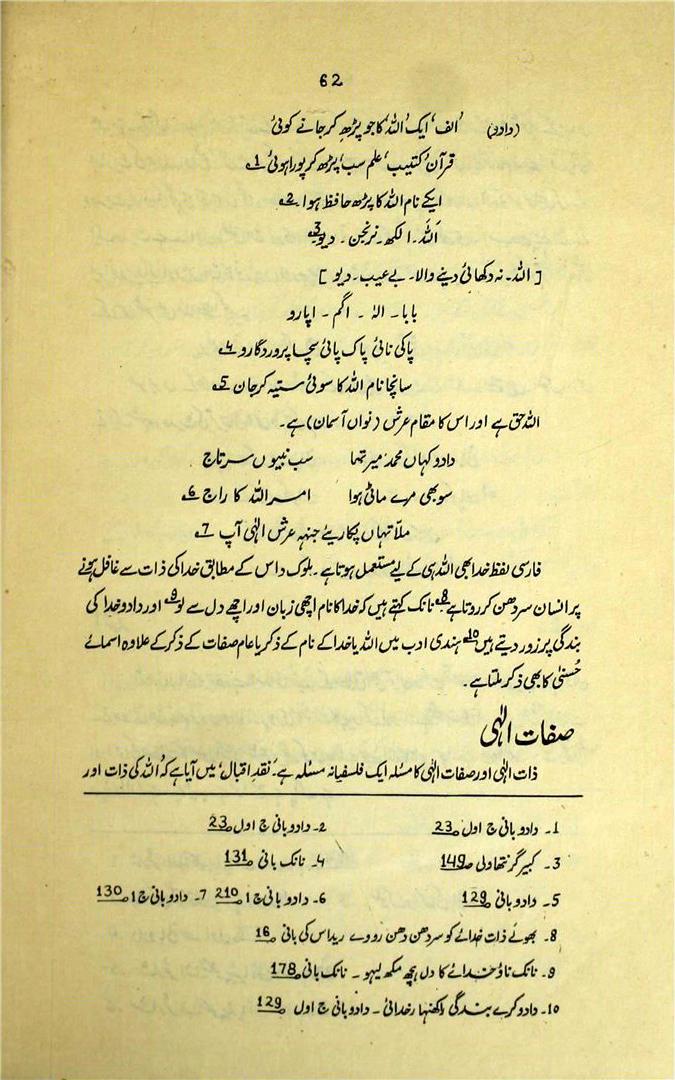 62
(دادو) 'الف' ایک 'اللہ' کا جو پڑھ کر جانے کوئی
قرآن' کتیب' علم سب' پڑھ کر پورا ہوئی 1ے
ایکے نام اللہ کا پڑھ حافظ ہوا 2ے
اَللّٰہ۔ الکھ۔ نرنجن ۔ دیو 3ے
[ اللہ۔ نہ دکھائی دینے والا۔ بے عیب۔ دیو ]
بابا۔ الہٰ ۔ اگم۔ اپارو
پاکی نائی پاک پائی سچا پروردگارو 4ے
سانچا نام اللہ کا سوئی ستیہ کر جان 5ے
اللہ حق ہے اور اس کا مقام عرش (نواں آسمان) ہے۔
دادو کہاں محمد میر تھا سب نبیوں سرتاج
سو بھی مرے ماٹی ہوا امر اللہ کا راج 6ے
ملّا تہاں پکاریئے جنہہ عرش الٰہی آپ 7ے
فارسی لفظ خدا بھی اللہ ہی کے لیے مستعمل ہوتا ہے۔ ملوک داس کے مطابق خدا کی ذات سے غافل ہونے
پر انسان سر دھن کر روتا ہے 8ے نانک کہتے ہیں کہ خدا کا نام اچھی زبان اور اچھے دل سے لو 9ے اور دادو خدا کی
بندگی پر زور دیتے ہیں 10ے ہندی ادب میں اللہ یا خدا کے نام کے ذکر یا عام صفات کے ذکر کے علاوہ اسمائے
حُسنیٰ کا بھی ذکر ملتا ہے۔
صفات الٰہی
ذات الٰہی اور صفات الٰہی کا مسئلہ ایک فلسفیانہ مسئلہ ہے۔ 'نقدِ اقبال' میں آیا ہے کہ 'اللہ کی ذات اور
1۔ دادو بانی ج اول ص 23 2۔ دادو بانی ج اول ص 23
3۔ کبیر گرنتھاولی ص 149 4۔ نانک بانی ص 131
5۔ دادو بانی ص 129 6۔ دادو بانی ج 1 ص 210 7۔ دادو بانی ج 1 ص 130
8۔ بھوئے ذات خدائے کو سر دھن دھن رووے ریداس کی بانی ص 16
9۔ نانک ناؤ خدائے کا دل ہچھ مکھ لیہو ۔ نانک بانی ص 178
10۔ دادو کرے بندگی راکھنہار خدائی ۔ دادو بانی ج اول ص 129